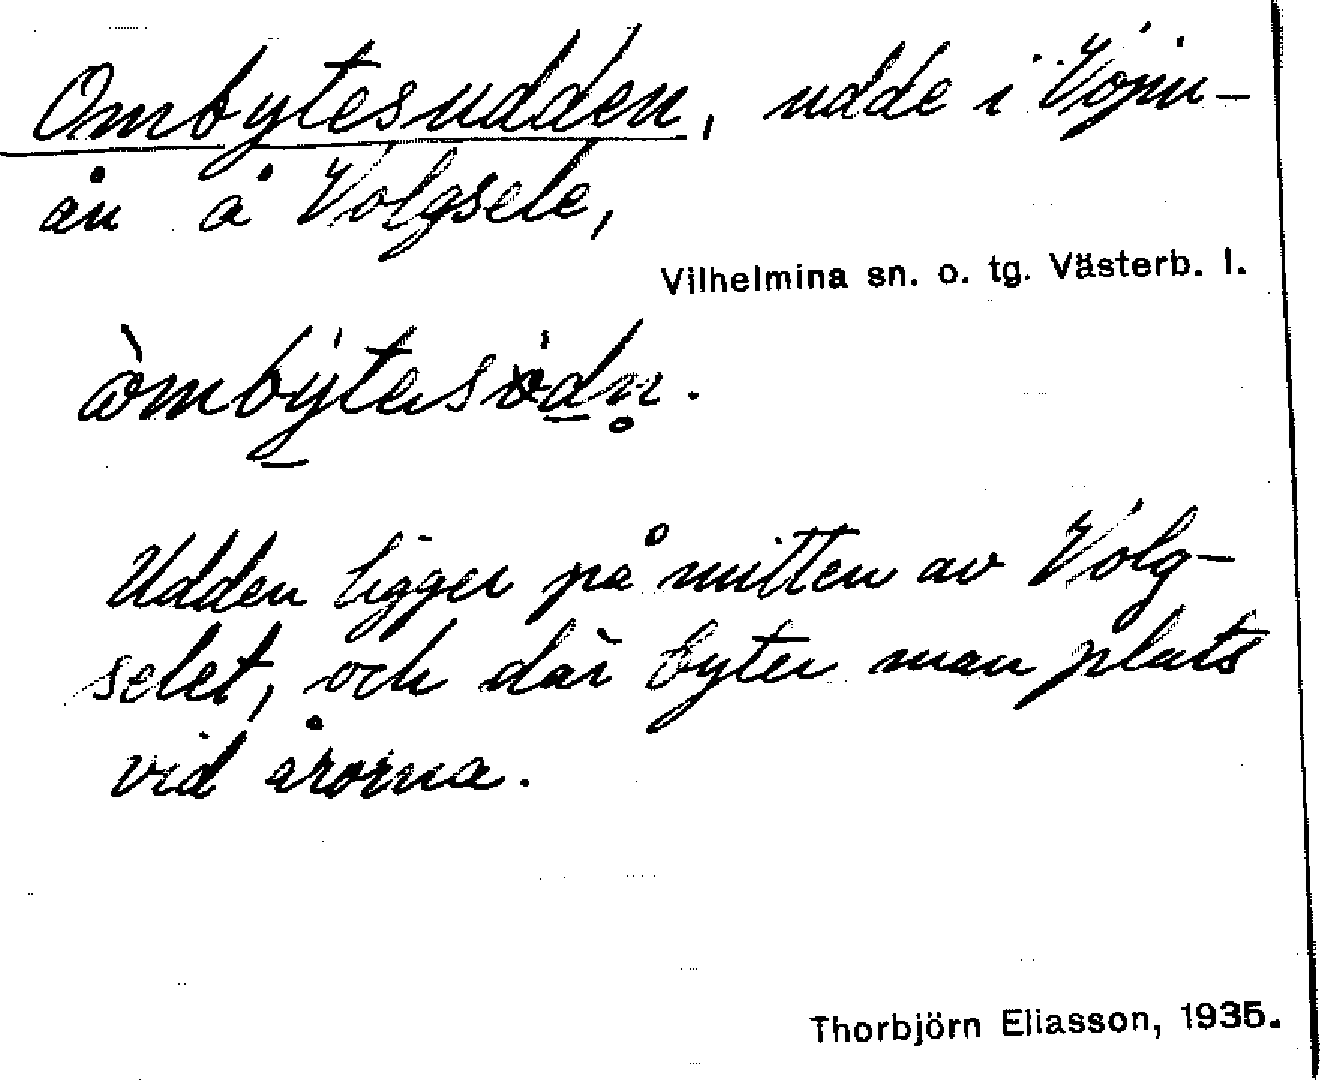 Ombytesudden, udde i Vojm-
ån å Volgsele,
Vilhelmina sn. o. tg. Västerb. l.
Udden ligger på mitten av Volg-
selet, och där byter man plats
vid årorna.
Thorbjörn Eliasson, 1935.